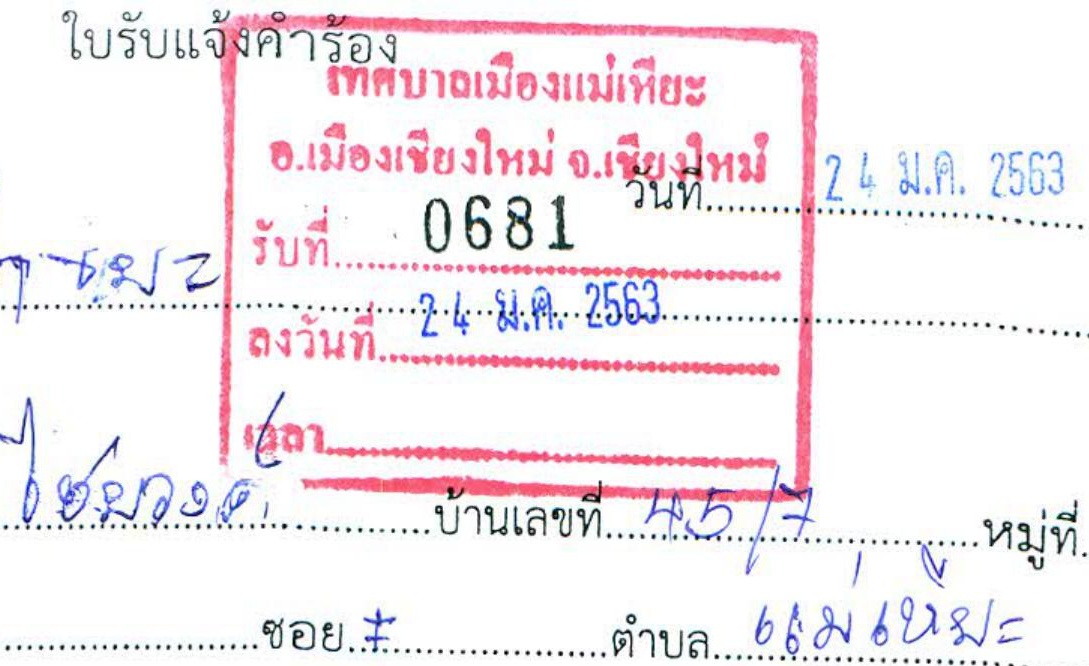 ใบรับแจ้งคำร้อง
เทศบาลเมืองแม่เหียะ
อ.เมืองเชียงใหม่ จ.เชียงใหม่
วันที่ 24 ม.ค. 2563
รับที่ 0681
ลงวันที่ 24 ม.ค. 2563
เวลา
ไชยวงศ์ บ้านเลขที่ 45/7 หมู่ที่
ซอย ตำบล แม่เหียะ